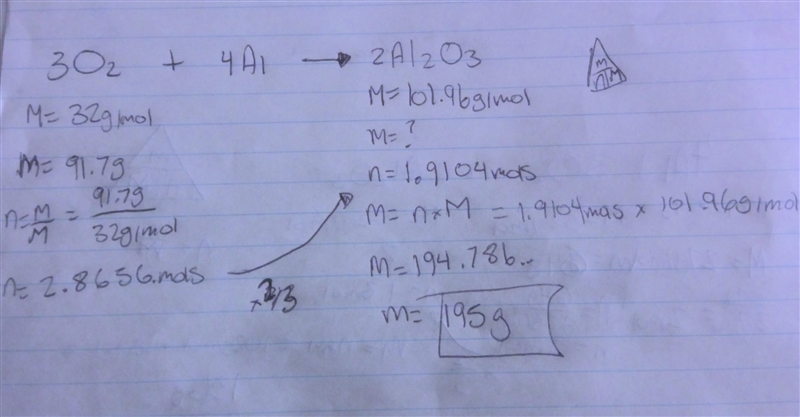 3O₂ + 4Al → 2Al₂O₃
m
n M
M = 32g/mol
m = 91.7g
n = m/M = 91.7g/32g/mol
n = 2.8656.mols
× 2/3
M = 101.96g/mol
m = ?
n = 1.9104mols
m = n×M = 1.9104mols × 101.96g/mol
m = 194.786..
m = 195g